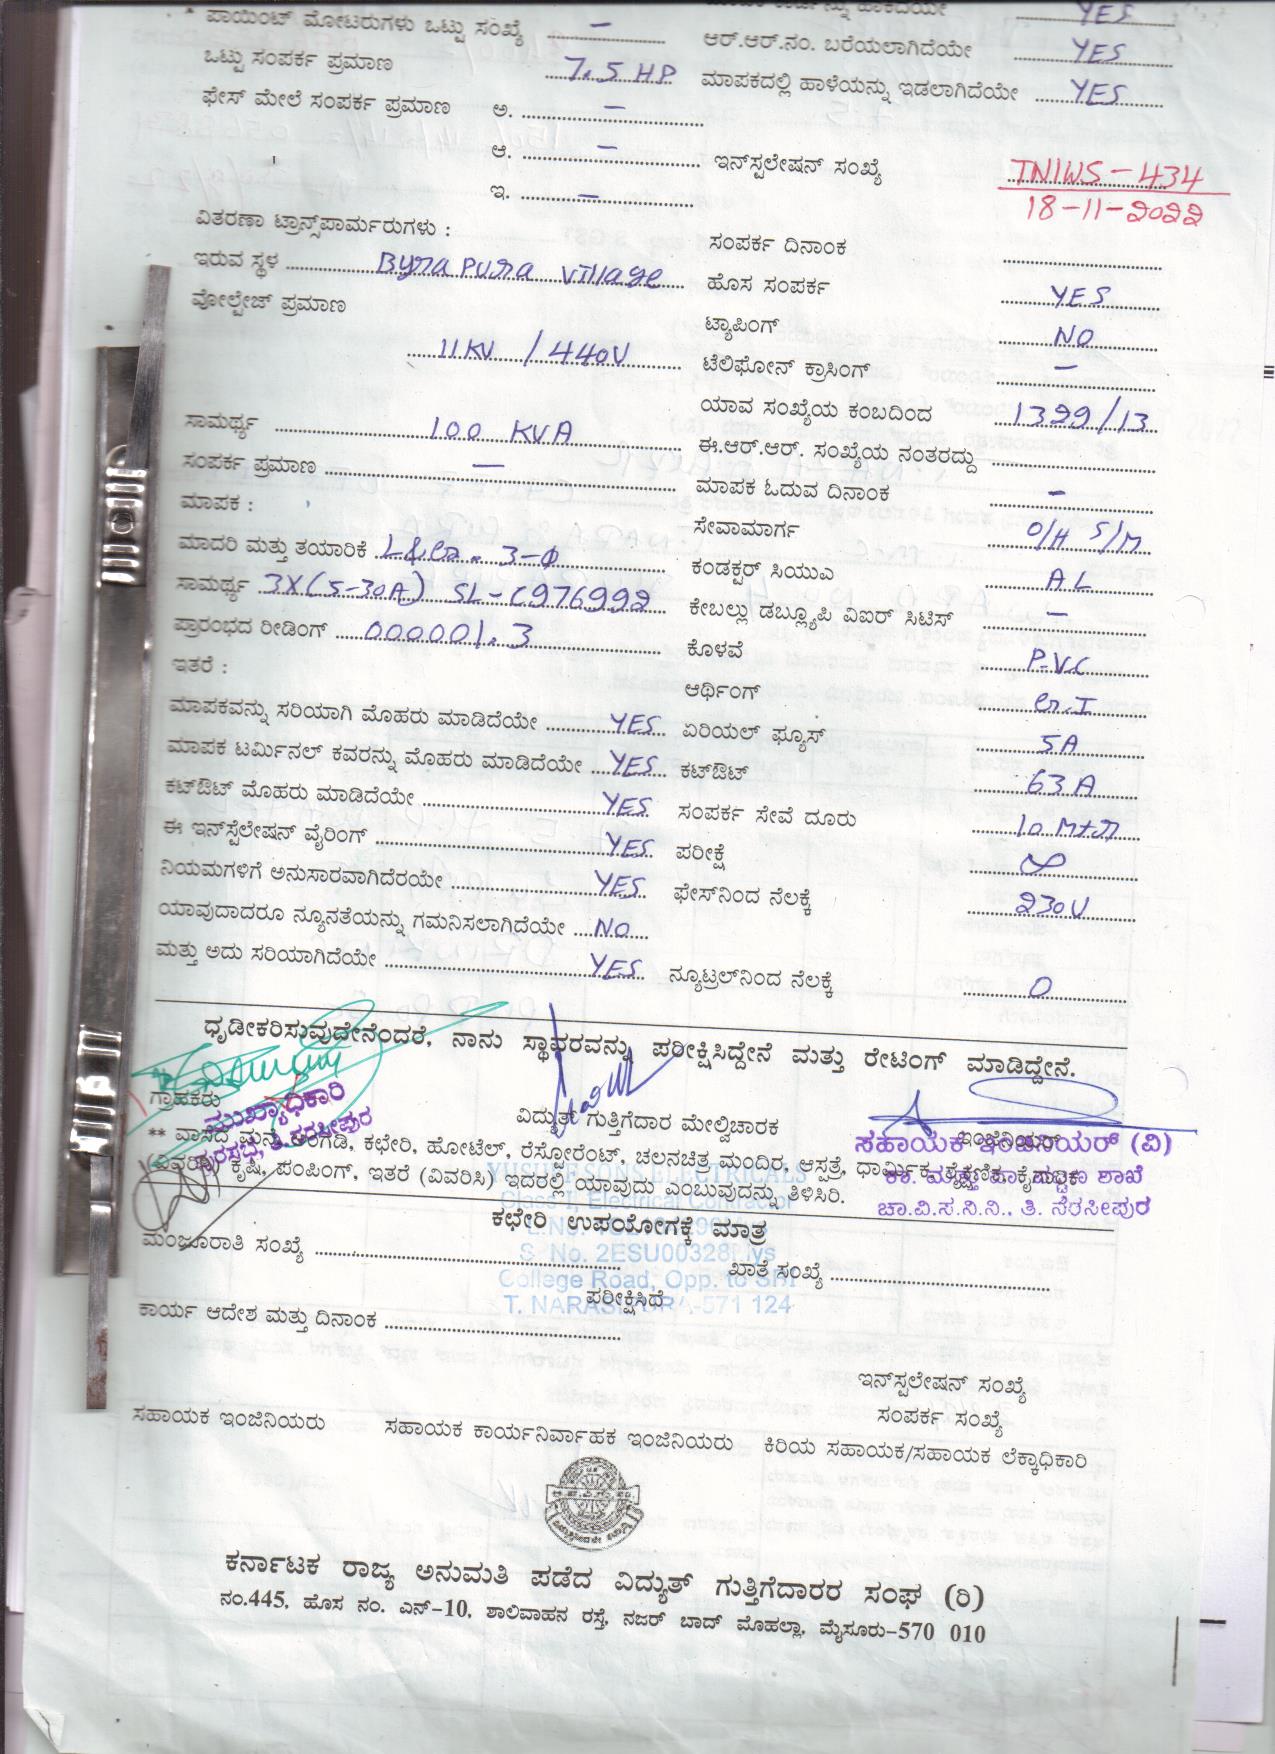 ಪಾಯಿಂಟ್ ಮೋಟರುಗಳು ಒಟ್ಟು ಸಂಖ್ಯೆ – YES
ಆರ್.ಆರ್.ನಂ. ಬರೆಯಲಾಗಿದೆಯೇ YES
ಒಟ್ಟು ಸಂಪರ್ಕ ಪ್ರಮಾಣ 7.5 HP ಮಾಪಕದಲ್ಲಿ ಹಾಳೆಯನ್ನು ಇಡಲಾಗಿದೆಯೇ YES
ಫೇಸ್ ಮೇಲೆ ಸಂಪರ್ಕ ಪ್ರಮಾಣ ಅ. –
ಆ. – ಇನ್‌ಸ್ಪಲೇಷನ್ ಸಂಖ್ಯೆ TNIWS-434
ಇ. – 18-11-2022
ವಿತರಣಾ ಟ್ರಾನ್ಸ್‌ಪಾರ್ಮರುಗಳು : ಸಂಪರ್ಕ ದಿನಾಂಕ
ಇರುವ ಸ್ಥಳ Byrapura Village ಹೊಸ ಸಂಪರ್ಕ YES
ವೋಲ್ಟೇಜ್ ಪ್ರಮಾಣ ಟ್ಯಾಪಿಂಗ್ NO
11KV / 440V ಟೆಲಿಫೋನ್ ಕ್ರಾಸಿಂಗ್ –
ಯಾವ ಸಂಖ್ಯೆಯ ಕಂಬದಿಂದ 1399/13
ಸಾಮರ್ಥ್ಯ 100 KVA ಈ.ಆರ್.ಆರ್. ಸಂಖ್ಯೆಯ ನಂತರದ್ದು
ಸಂಪರ್ಕ ಪ್ರಮಾಣ – ಮಾಪಕ ಓದುವ ದಿನಾಂಕ –
ಮಾಪಕ : ಸೇವಾಮಾರ್ಗ O/H S/M
ಮಾದರಿ ಮತ್ತು ತಯಾರಿಕೆ L&G. 3-Φ ಕಂಡಕ್ಟರ್ ಸಿಯುಎ A.L
ಸಾಮರ್ಥ್ಯ 3X(5-30A) SL-C976992 ಕೇಬಲ್ಲು ಡಬ್ಲ್ಯೂಪಿ ವಿಐರ್ ಸಿಟಿಸ್ –
ಪ್ರಾರಂಭದ ರೀಡಿಂಗ್ 000001.3 ಕೊಳವೆ P.V.C
ಇತರೆ : ಆರ್ಥಿಂಗ್ G.I
ಮಾಪಕವನ್ನು ಸರಿಯಾಗಿ ಮೊಹರು ಮಾಡಿದೆಯೇ YES ಏರಿಯಲ್ ಫ್ಯೂಸ್ 5A
ಮಾಪಕ ಟರ್ಮಿನಲ್ ಕವರನ್ನು ಮೊಹರು ಮಾಡಿದೆಯೇ YES ಕಟ್‌ಔಟ್ 63A
ಕಟ್‌ಔಟ್ ಮೊಹರು ಮಾಡಿದೆಯೇ YES ಸಂಪರ್ಕ ಸೇವೆ ದೂರು 10 Mtr
ಈ ಇನ್‌ಸ್ಟೆಲೇಷನ್ ವೈರಿಂಗ್ YES ಪರೀಕ್ಷೆ ∞
ನಿಯಮಗಳಿಗೆ ಅನುಸಾರವಾಗಿದೆರಯೇ YES ಫೇಸ್‌ನಿಂದ ನೆಲಕ್ಕೆ 230V
ಯಾವುದಾದರೂ ನ್ಯೂನತೆಯನ್ನು ಗಮನಿಸಲಾಗಿದೆಯೇ NO
ಮತ್ತು ಅದು ಸರಿಯಾಗಿದೆಯೇ YES ನ್ಯೂಟ್ರಲ್‌ನಿಂದ ನೆಲಕ್ಕೆ 0
ಧೃಡೀಕರಿಸುವುದೇನೆಂದರೆ, ನಾನು ಸ್ಥಾವರವನ್ನು ಪರೀಕ್ಷಿಸಿದ್ದೇನೆ ಮತ್ತು ರೇಟಿಂಗ್ ಮಾಡಿದ್ದೇನೆ.
ಗ್ರಾಹಕರು ವಿದ್ಯುತ್ ಗುತ್ತಿಗೆದಾರ ಮೇಲ್ವಿಚಾರಕ ಇಂಜಿನಿಯರ್
ಮುಖ್ಯಾಧಿಕಾರಿ
ಪುರಸಭೆ, ತಿ.ನರಸೀಪುರ
ಸಹಾಯಕ ಇಂಜಿನಿಯರ್ (ವಿ)
ಚಾ.ವಿ.ಸ.ನಿ.ನಿ., ತಿ. ನರಸೀಪುರ
** ವಾಸದ ಮನೆ, ಅಂಗಡಿ, ಕಛೇರಿ, ಹೋಟೆಲ್, ರೆಸ್ಟೋರೆಂಟ್, ಚಲನಚಿತ್ರ ಮಂದಿರ, ಆಸ್ಪತ್ರೆ, ಧಾರ್ಮಿಕ, ಶೈಕ್ಷಣಿಕ, ಕೈಗಾರಿಕೆ
(ವಿವರಿಸಿ) ಕೃಷಿ, ಪಂಪಿಂಗ್, ಇತರೆ (ವಿವರಿಸಿ) ಇದರಲ್ಲಿ ಯಾವುದು ಎಂಬುವುದನ್ನು ತಿಳಿಸಿರಿ.
YUSUFF SONS ELECTRICALS
Class I, Electrical Contractor
S. No. 2ESU00328
College Road, Opp. to SBI
T. NARASIPURA-571 124
ಕಛೇರಿ ಉಪಯೋಗಕ್ಕೆ ಮಾತ್ರ
ಮಂಜೂರಾತಿ ಸಂಖ್ಯೆ ಖಾತೆ ಸಂಖ್ಯೆ
ಪರೀಕ್ಷಿಸಿದೆ
ಕಾರ್ಯ ಆದೇಶ ಮತ್ತು ದಿನಾಂಕ
ಇನ್‌ಸ್ಪಲೇಷನ್ ಸಂಖ್ಯೆ
ಸಂಪರ್ಕ ಸಂಖ್ಯೆ
ಸಹಾಯಕ ಇಂಜಿನಿಯರು ಸಹಾಯಕ ಕಾರ್ಯನಿರ್ವಾಹಕ ಇಂಜಿನಿಯರು ಕಿರಿಯ ಸಹಾಯಕ/ಸಹಾಯಕ ಲೆಕ್ಕಾಧಿಕಾರಿ
ಕರ್ನಾಟಕ ರಾಜ್ಯ ಅನುಮತಿ ಪಡೆದ ವಿದ್ಯುತ್ ಗುತ್ತಿಗೆದಾರರ ಸಂಘ (ರಿ)
ನಂ.445, ಹೊಸ ನಂ. ಎನ್-10, ಶಾಲಿವಾಹನ ರಸ್ತೆ, ನಜರ್ ಬಾದ್ ಮೊಹಲ್ಲಾ, ಮೈಸೂರು-570 010